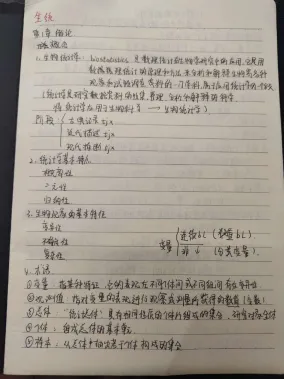 生统
第1章 概论
一、概念
1. 生物统计学: biostatistics 是数理统计在生物学研究中的应用, 它是用
数理统计的原理和方法来分析和解释生物界各种
现象和试验调查资料的一门学科, 属于应用统计学的一个分支
(统计学是研究数据资料的收集、整理、分析和解释的科学
将统计学应用于生物科学 → 生物统计学)
阶段: 古典记录 tjx
近代描述 tjx
现代推断 tjx
2. 统计学基本特点
概率性
二元性
归纳性
3. 生物现象的基本特征
变异性
不确定性
复杂性
变量 连续bl (定量bl)
非 (定类变量)
4. 方法
①变量: 指某种特征, 它的表现在不同个体间或不同组间存在变异性
②观测值: 指对变量的表现进行观察或测量所获得的数值 (变数)
③总体: "统计总体" 具有相同性质的个体所组成的集合, 研究对象全体
④个体: 组成总体的基本单元
⑤样本: 从总体中抽出若干个体构成的集合